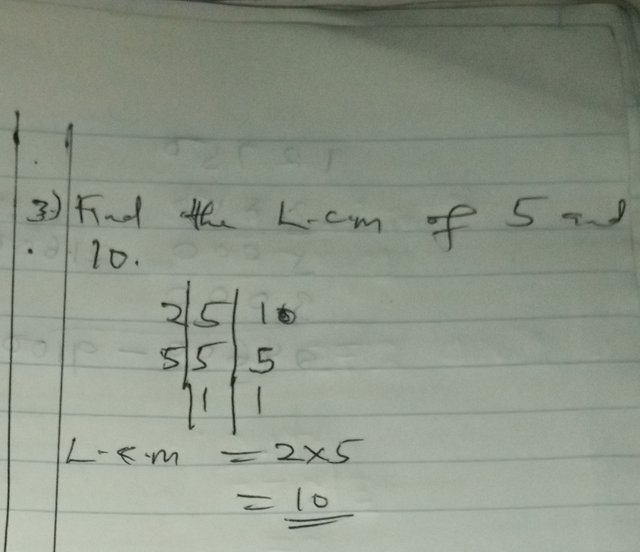 3.) Find the L.c.m of 5 and
10.
2|5|10
5|5|5
|1|1
L.c.m = 2×5
= 10